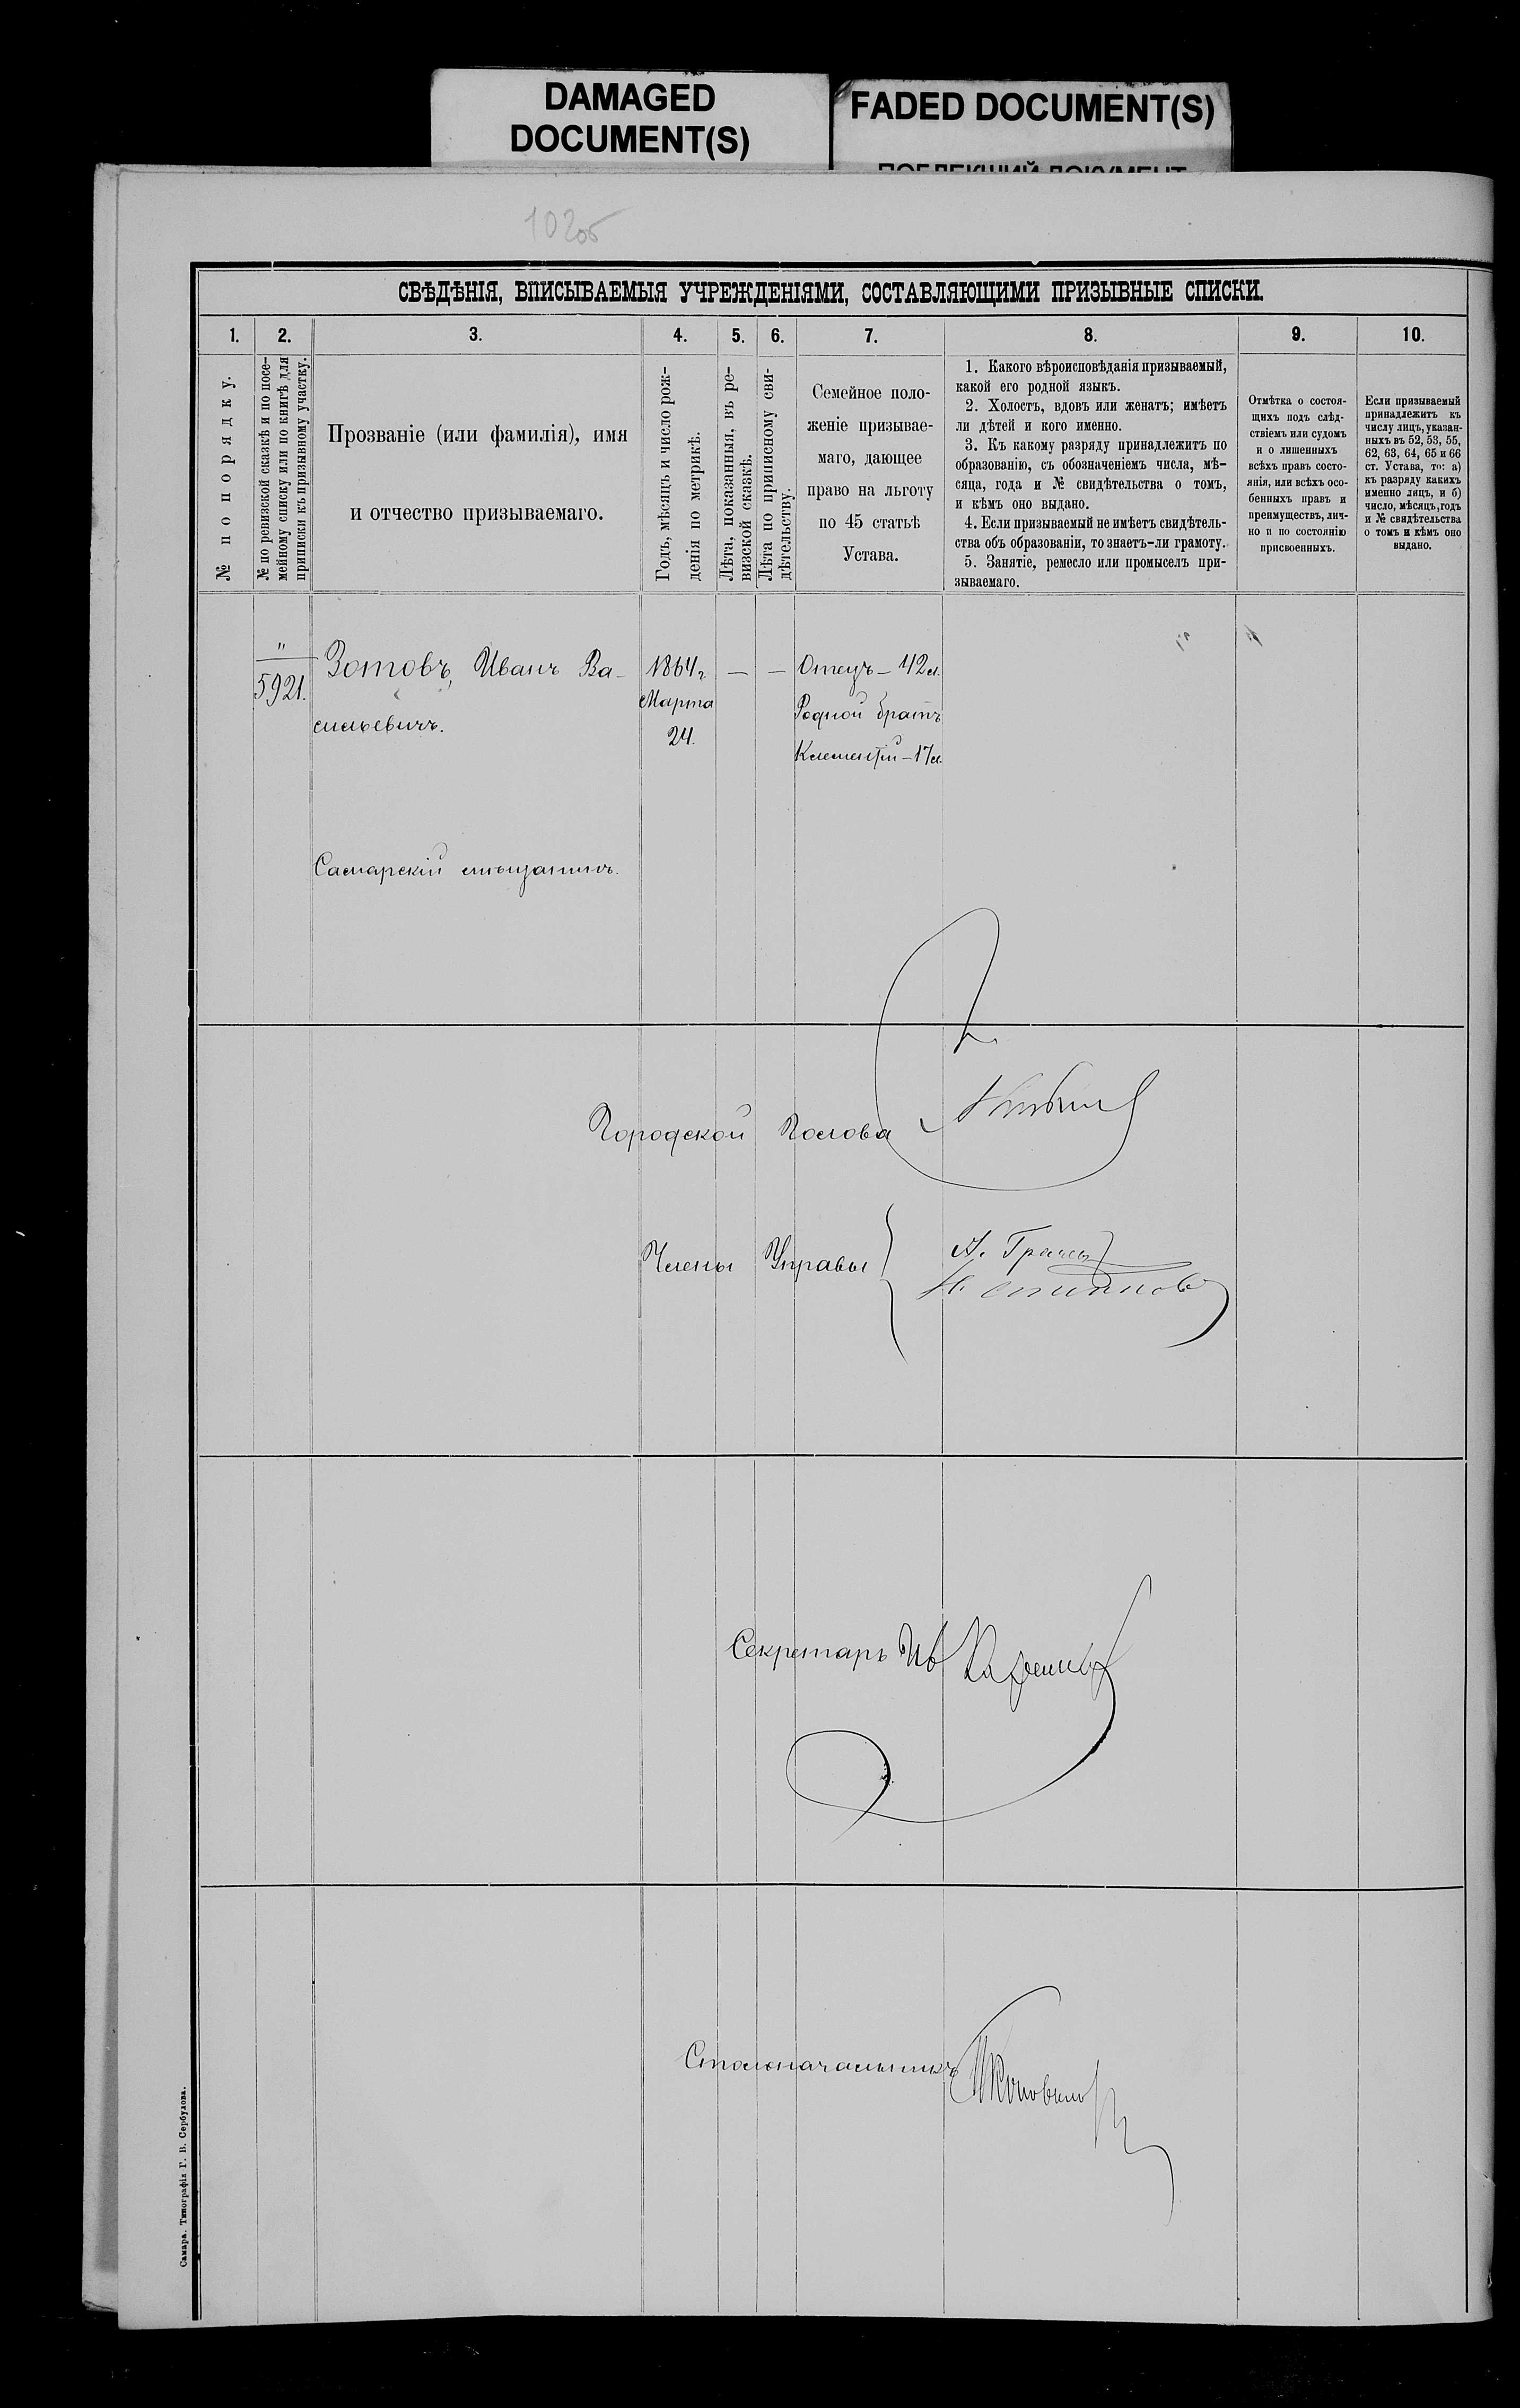 DAMAGED
DOCUMENT(S)
FADED DOCUMENT(S)
ПОБЛЕКШИЙ ДОКУМЕНТ
102об
СВѢДѢНІЯ, ВПИСЫВАЕМЫЯ УЧРЕЖДЕНІЯМИ, СОСТАВЛЯЮЩИМИ ПРИЗЫВНЫЕ СПИСКИ.
1.
2.
3.
4.
5.
6.
7.
8.
9.
10.
№ по порядку.
№ по ревизской сказкѣ и по посе-
мейному списку или по книгѣ для
приписки къ призывному участку.
Прозваніе (или фамилія), имя
и отчество призываемаго.
Годъ, мѣсяцъ и число рож-
денія по метрикѣ.
Лѣта, показанныя, въ ре-
визской сказкѣ.
Лѣта по приписному сви-
дѣтельству.
Семейное поло-
женіе призывае-
маго, дающее
право на льготу
по 45 статьѣ
Устава.
1. Какого вѣроисповѣданія призываемый,
какой его родной языкъ.
2. Холостъ, вдовъ или женатъ; имѣетъ
ли дѣтей и кого именно.
3. Къ какому разряду принадлежитъ по
образованію, съ обозначеніемъ числа, мѣ-
сяца, года и № свидѣтельства о томъ,
и кѣмъ оно выдано.
4. Если призываемый не имѣетъ свидѣтель-
ства объ образованіи, то знаетъ-ли грамоту.
5. Занятіе, ремесло или промыселъ при-
зываемаго.
Отмѣтка о состоя-
щихъ подъ слѣд-
ствіемъ или судомъ
и о лишенныхъ
всѣхъ правъ состо-
янія, или всѣхъ осо-
бенныхъ правъ и
преимуществъ, лич-
но и по состоянію
присвоенныхъ.
Если призываемый
принадлежитъ къ
числу лицъ, указан-
ныхъ въ 52, 53, 55,
62, 63, 64, 65 и 66
ст. Устава, то: а)
къ разряду какихъ
именно лицъ, и б)
число, мѣсяцъ, годъ
и № свидѣтельства
о томъ и кѣмъ оно
выдано.
"
5921.
Зотовъ, Иванъ Ва-
сильевичъ.
1864 г.
Марта
24.
—
—
Отецъ – 42 л.
Родной братъ
Климентій – 17 л.
Самарскій мѣщанинъ.
Городской Голова
Члены Управы
Секретарь Ив
Столоначальникъ
Самара. Типографія Г. В. Сербулова.